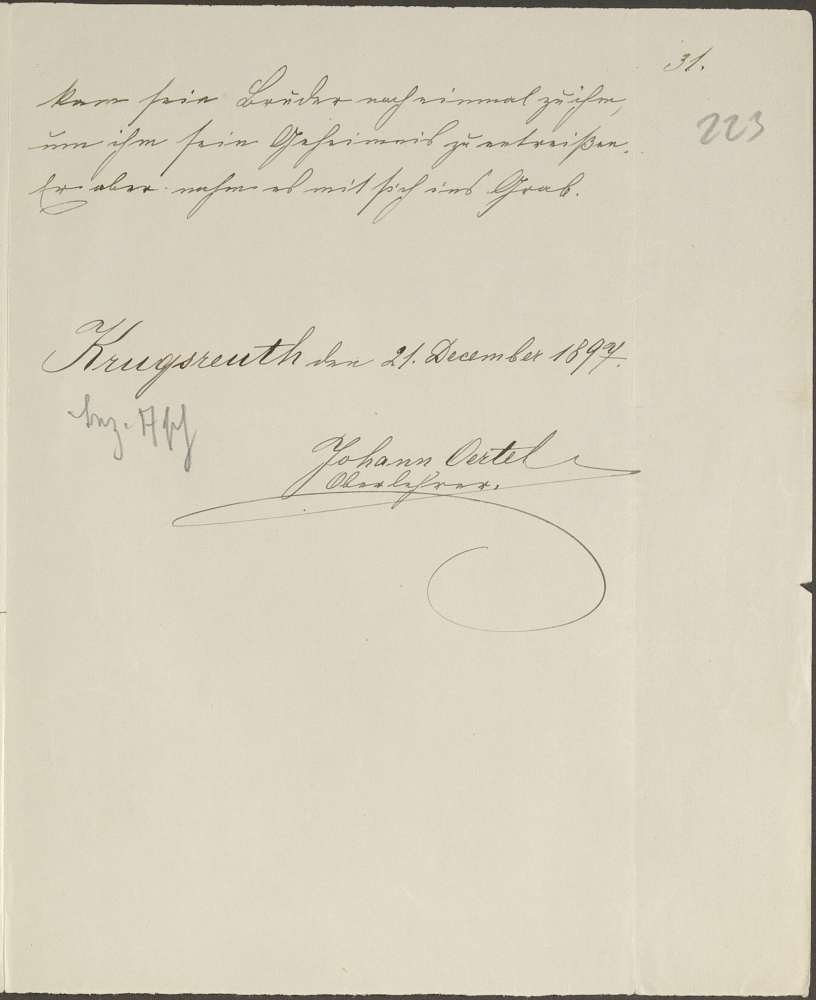 31.
223
kam sein Bruder noch einmal zu ihm,
um ihm sein Geheimnis zu entreißen.
Er aber nahm es mit sich ins Grab.
Krugsreuth den 21. December 1897.
bez. Asch
Johann Oertel
Oberlehrer.